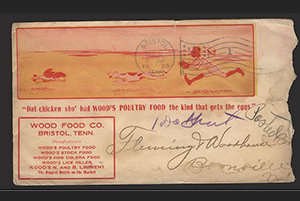 BRISTOL
"Dat chicken sho' had WOOD'S POULTRY FOOD the kind that gets the eggs"
WOOD FOOD CO.
BRISTOL, TENN.
Manufacturers
WOOD'S POULTRY FOOD
WOOD'S STOCK FOOD
WOOD'S HOG COLERA FOOD
WOOD'S LICE KILLER
WOOD'S N. AND B. LINIMENT
The Biggest Bottle on the Market
Fleming & Woodhouse